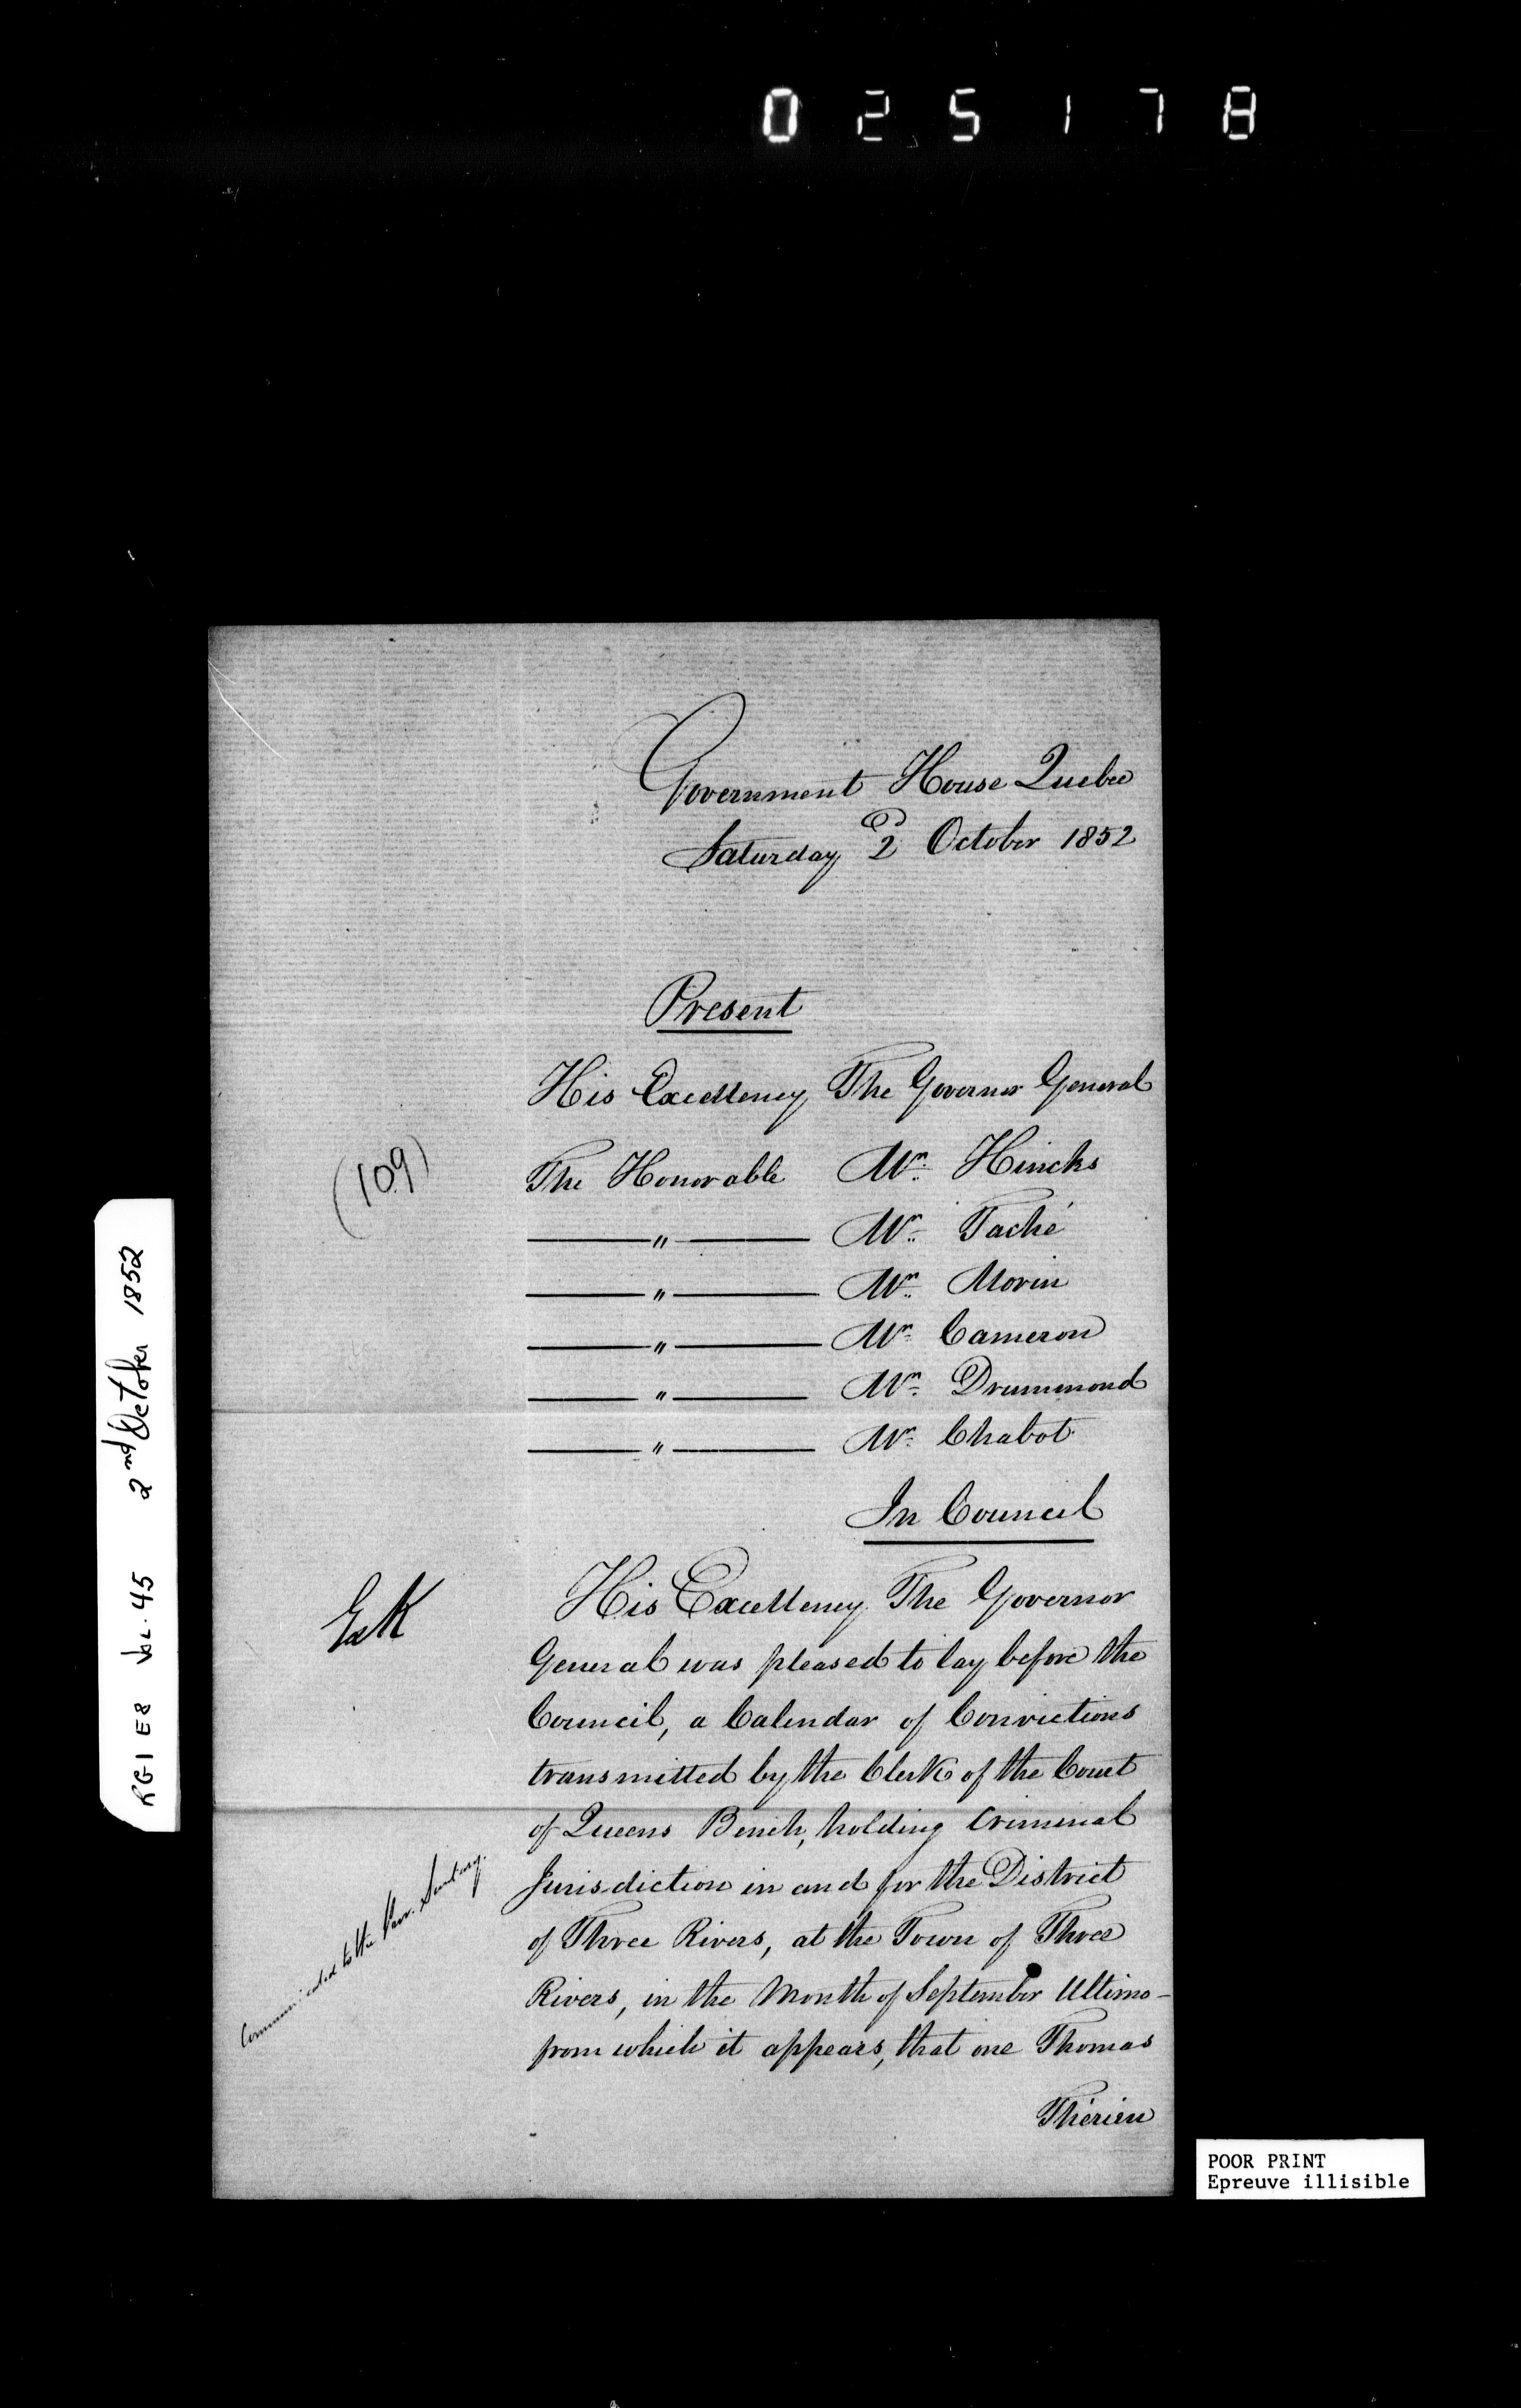 025178
Government House Quebec
Saturday 2d October 1852
Present
His Excellency The Governor General
(109)
The Honorable Mr. Hincks
——"—— Mr. Taché
——"—— Mr. Morin
——"—— Mr. Cameron
——"—— Mr. Drummond
——"—— Mr. Chabot
In Council
His Excellency The Governor
General was pleased to lay before the
Council, a Calendar of Convictions
transmitted by the Clerk of the Court
of Queens Bench, holding Criminal
Jurisdiction in and for the District
of Three Rivers, at the Town of Three
Rivers, in the Month of September Ultimo –
from which it appears, that one Thomas
Thérien
Communicated to the Prov. Secretary.
RG1 E8 Vol. 45 2nd October 1852
POOR PRINT
Epreuve illisible